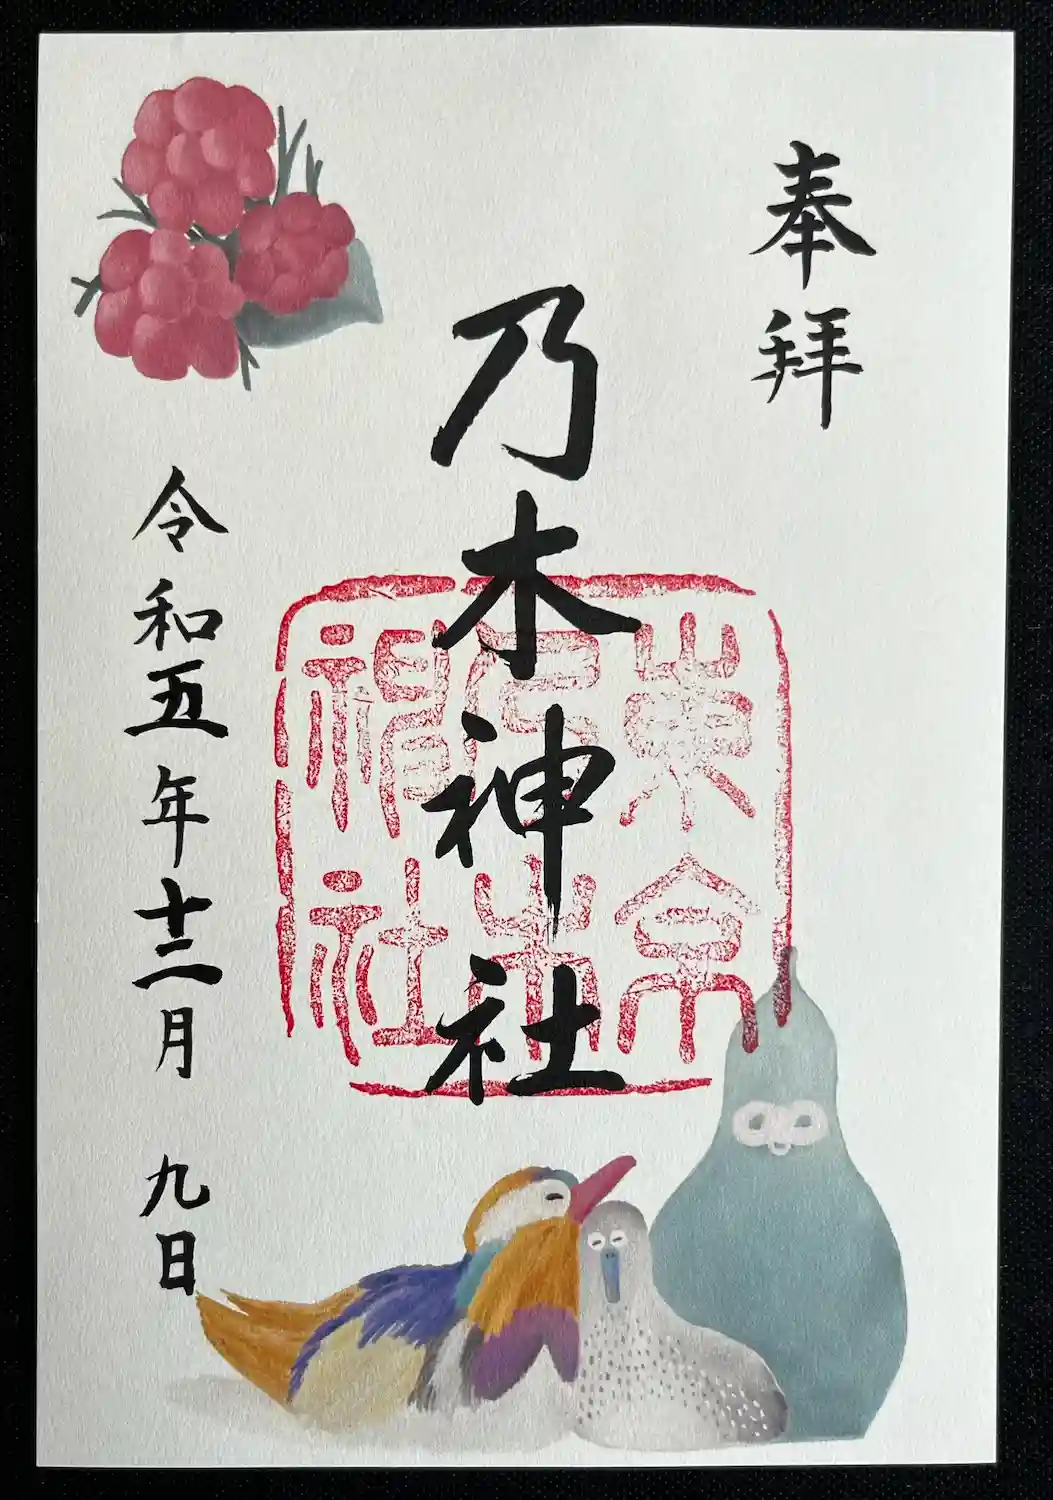 奉拝
乃木神社
東京乃木神社
令和五年十二月九日